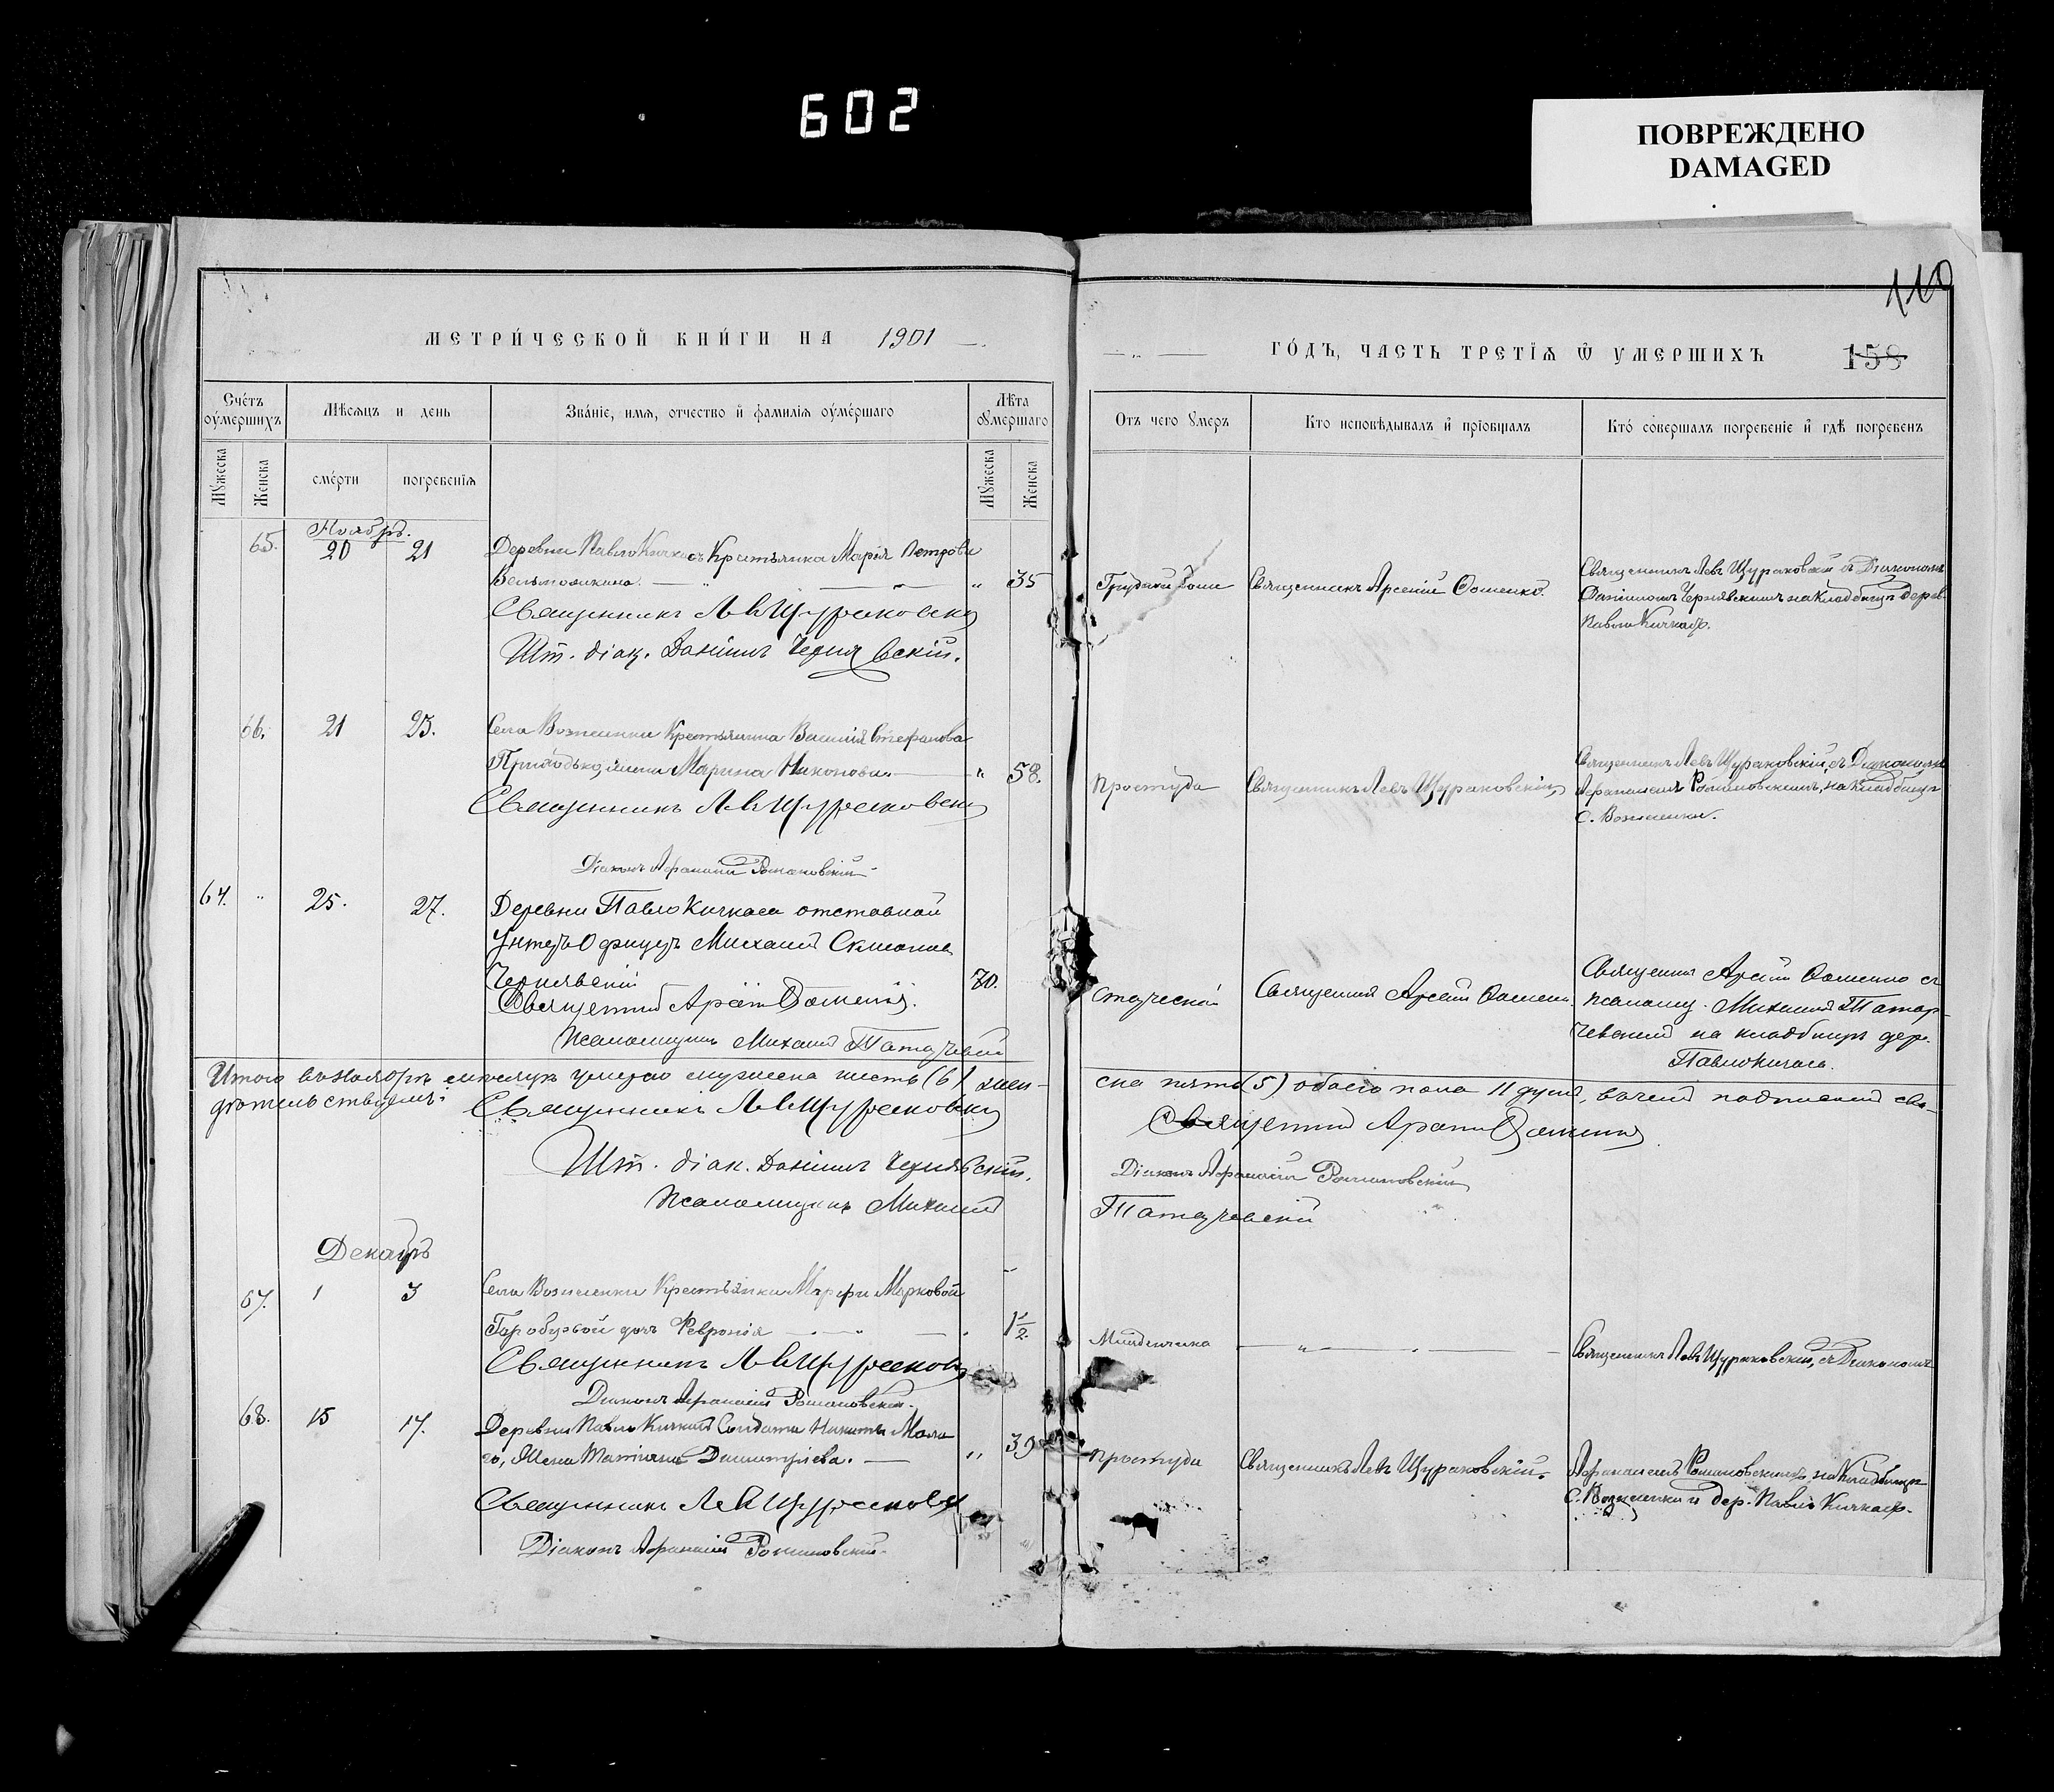 602
ПОВРЕЖДЕНО
DAMAGED
110
МЕТРИ́ЧЕСКОЙ КНИ́ГИ НА 1901
ГО́ДЪ, ЧАСТЬ ТРЕТІѦ Ѿ УМЕРШИХЪ 158
Сче́тъ оу҆́мершихъ
Мѣсяцъ и день
Зва́ніе, имя, отчество и҆ фамилія оу҆ме́ршаго
Лѣта Ꙋмершаго
Мꙋжеска
Женска
сме́рти
погребенія
Мꙋжеска
Женска
Отъ чего Ꙋмеръ
Кто исповѣдывалъ и҆ пріобщалъ
Кто́ со́вершалъ погребеніе и҆ гдѣ погребенъ
Ноябрь.
65. 20 21 Деревни Павло Кичкасъ Крестьянка Марія Петрова
35
Священникъ Левъ Щураковскій
Шт. діак. Даніилъ Чернявскій.
Грудной боли
Священникъ Арсеній Ѳоменко.
Священникъ Левъ Щураковскій съ Діакономъ
Даніиломъ Чернявскимъ на Кладбищѣ Дерев.
Павло Кичкасѣ.
66. 21 23. Села Вознесенки Крестьянина Василія Стефанова
Приходько, жена Марина Никонова. 58.
Священникъ Левъ Щураковскій
Діаконъ Аѳанасій Романовскій
Простуда
Священникъ Левъ Щураковскій,
Священникъ Левъ Щураковскій, съ Діакономъ
Аѳанасіемъ Романовскимъ, на Кладбищѣ
С. Вознесенки.
64. 25. 27. Деревни Павло Кичкаса отставной
Унтеръ Офицеръ Михаилъ
Чернявскій 70.
Священникъ Арсеній Ѳоменко.
Псаломщикъ Михаилъ Татарчевскій
Старческой
Священникъ Арсеній Ѳоменко.
Священникъ Арсеній Ѳоменко съ
псаломщ. Михаиломъ Татар-
чевскимъ на кладбищѣ дер.
Павлокичкасъ.
Итого въ Ноябрѣ мѣсяцѣ умерло мужеска шесть (6) жен-
ска пять (5) обоего пола 11 душъ, въ чемъ подписомъ сви-
дѣтельствуемъ:
Священникъ Левъ Щураковскій
Священникъ Арсеній Ѳоменко
Шт. діак. Даніилъ Чернявскій.
Діаконъ Аѳанасій Романовскій
Псаломщикъ Михаилъ
Татарчевскій
Декабрь
67. 1 3 Села Вознесенки Крестьянки Марфы Марковой
дочь Февронія 1 1/2
Священникъ Левъ Щураковскій
Діаконъ Аѳанасій Романовскій.
Младенческа
Священникъ Левъ Щураковскій, съ Діакономъ
68. 15 17. Деревни Павло Кичкасъ Солдата Никиты Мала
го, Жена Татіана Димитріева. 39
Священникъ Левъ Щураковскій
Діаконъ Аѳанасій Романовскій.
Простуда
Священникъ Левъ Щураковскій.
Аѳанасіемъ Романовскимъ, на Кладбищѣ
С. Вознесенки и дер. Павло Кичкасѣ.